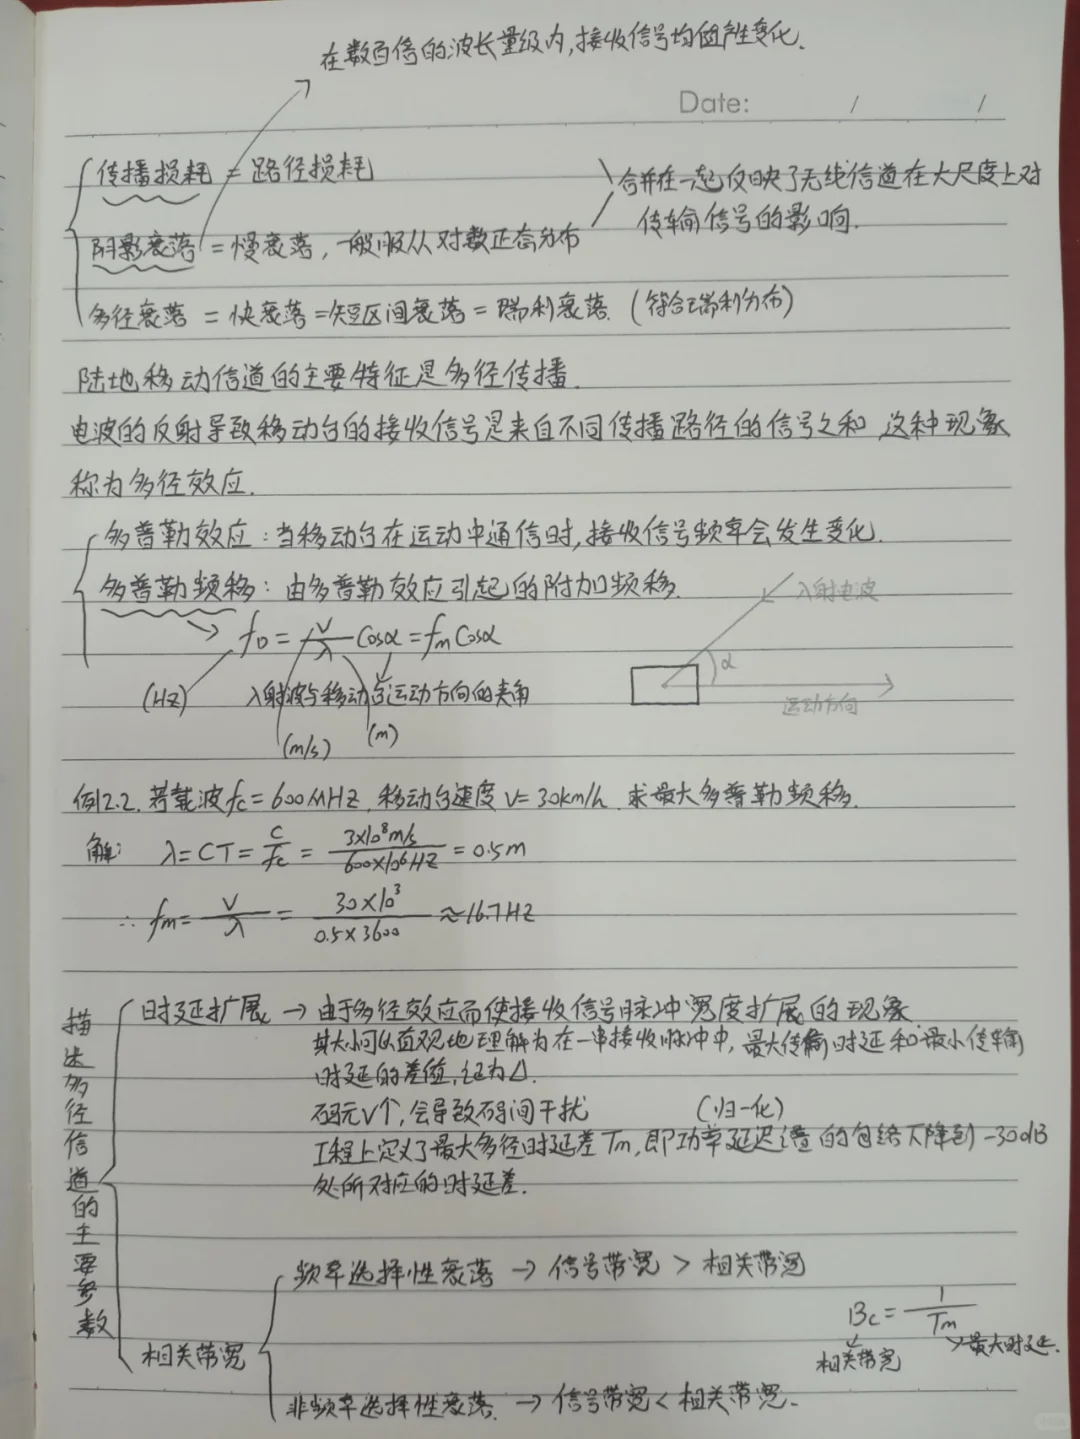 在数百倍的波长量级内,接收信号均值产生变化.
Date: / /
传播损耗 = 路径损耗
合并在一起反映了无线信道在大尺度上对
传输信号的影响.
阴影衰落 = 慢衰落, 一般服从对数正态分布
多径衰落 = 快衰落 = 短区间衰落 = 瑞利衰落. (符合瑞利分布)
陆地移动信道的主要特征是多径传播.
电波的反射导致移动台的接收信号是来自不同传播路径的信号之和 这种现象
称为多径效应.
多普勒效应:当移动台在运动中通信时,接收信号频率会发生变化.
多普勒频移:由多普勒效应引起的附加频移.
入射电波
f_D = V/λ Cosα = f_m Cosα
α
(HZ) 入射波与移动台运动方向的夹角
运动方向
(m/s) (m)
例2.2. 若载波 fc = 600MHZ, 移动台速度 V = 30km/h. 求最大多普勒频移.
解: λ = CT = C/fc = 3×10⁸m/s / 600×10⁶HZ = 0.5m
∴ fm = V/λ = 30×10³ / 0.5×3600 ≈ 16.7HZ
描述多径信道的主要参数
时延扩展 → 由于多径效应而使接收信号脉冲宽度扩展的现象
其大小可以直观地理解为在一串接收脉冲中,最大传输时延和最小传输
时延的差值,记为Δ.
码元V个,会导致码间干扰 (归一化)
工程上定义了最大多径时延差Tm,即功率延迟谱的包络下降到-30dB
处所对应的时延差.
相关带宽
频率选择性衰落 → 信号带宽 > 相关带宽
Bc = 1/Tm
最大时延.
相关带宽
非频率选择性衰落. → 信号带宽 < 相关带宽.